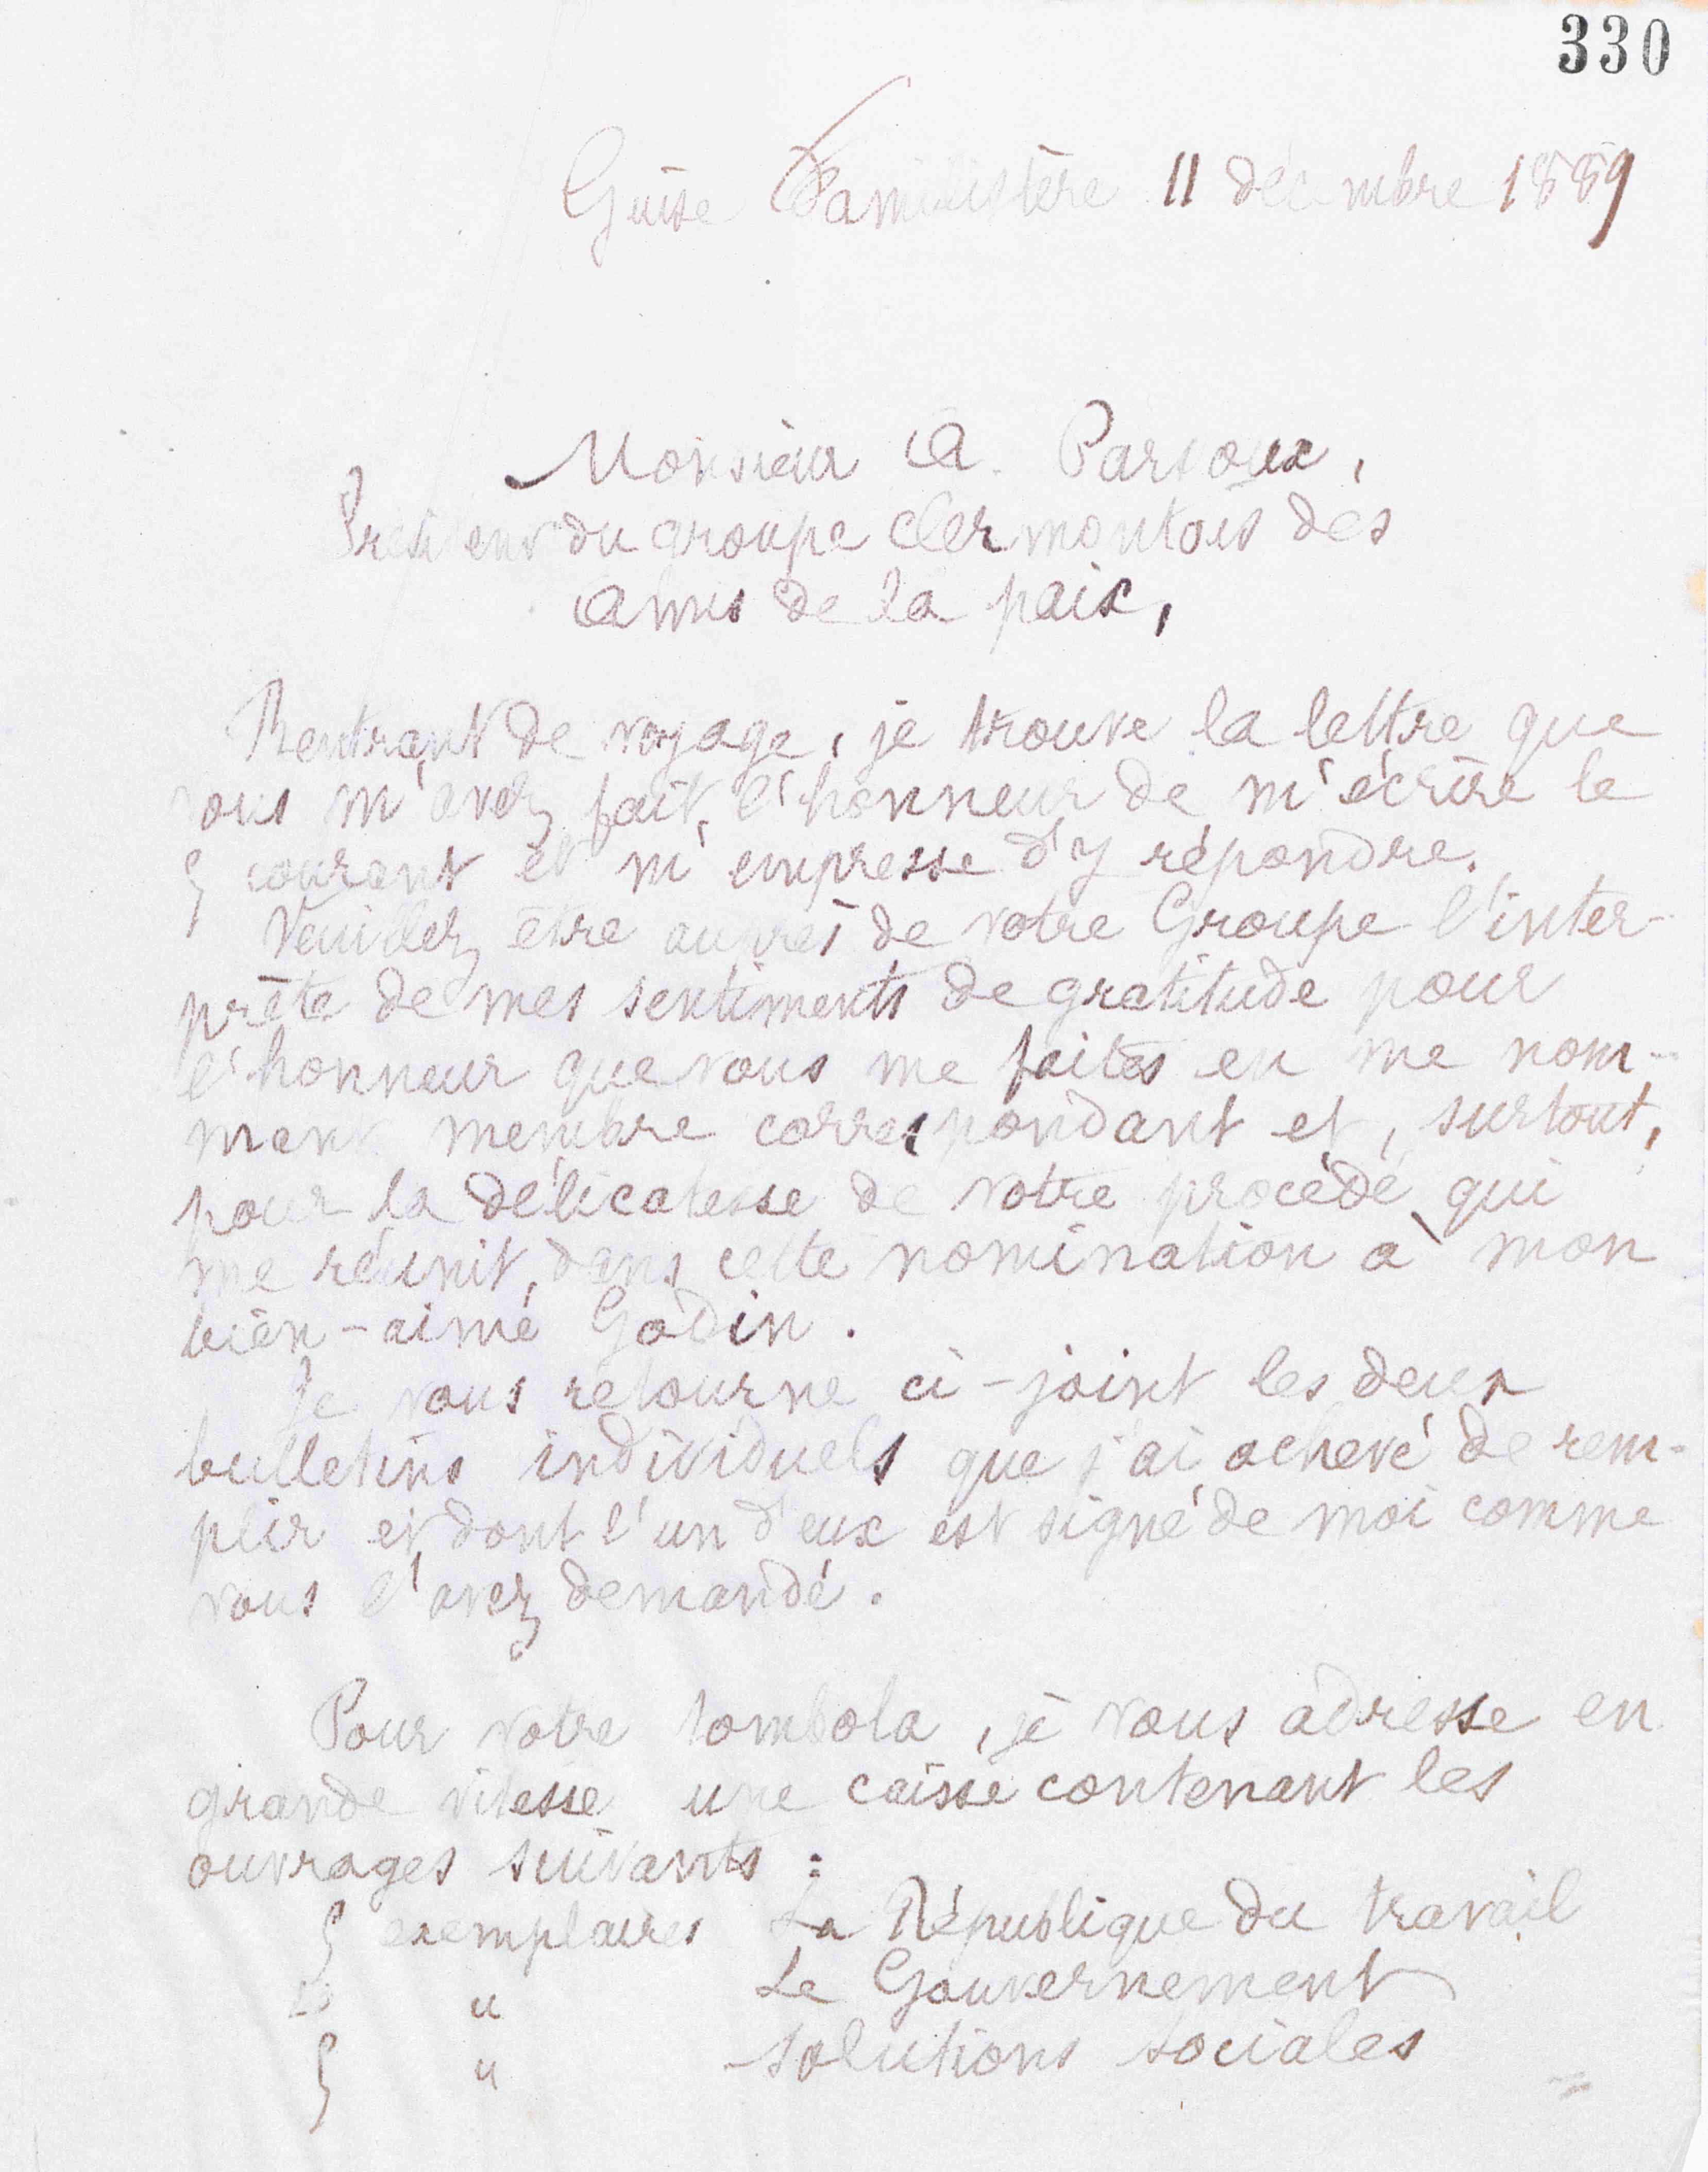 330
Guise Familistère 11 décembre 1889
Monsieur A. Parsoux,
Président du groupe clermontois des
amis de la paix,
Rentrant de voyage, je trouve la lettre que
vous m'avez fait l'honneur de m'écrire le
5 courant et m'empresse d'y répondre.
Veuillez être auprès de votre Groupe l'inter-
prète de mes sentiments de gratitude pour
l'honneur que vous me faites en me nom-
mant membre correspondant et, surtout,
pour la délicatesse de votre procédé qui
me réunit, dans cette nomination à mon
bien-aimé Godin.
Je vous retourne ci-joint les deux
bulletins individuels que j'ai achevé de rem-
plir et dont l'un d'eux est signé de moi comme
vous l'avez demandé.
Pour votre tombola, je vous adresse en
grande vitesse une caisse contenant les
ouvrages suivants :
5 exemplaires La République du travail
" Le Gouvernement
5 " Solutions sociales